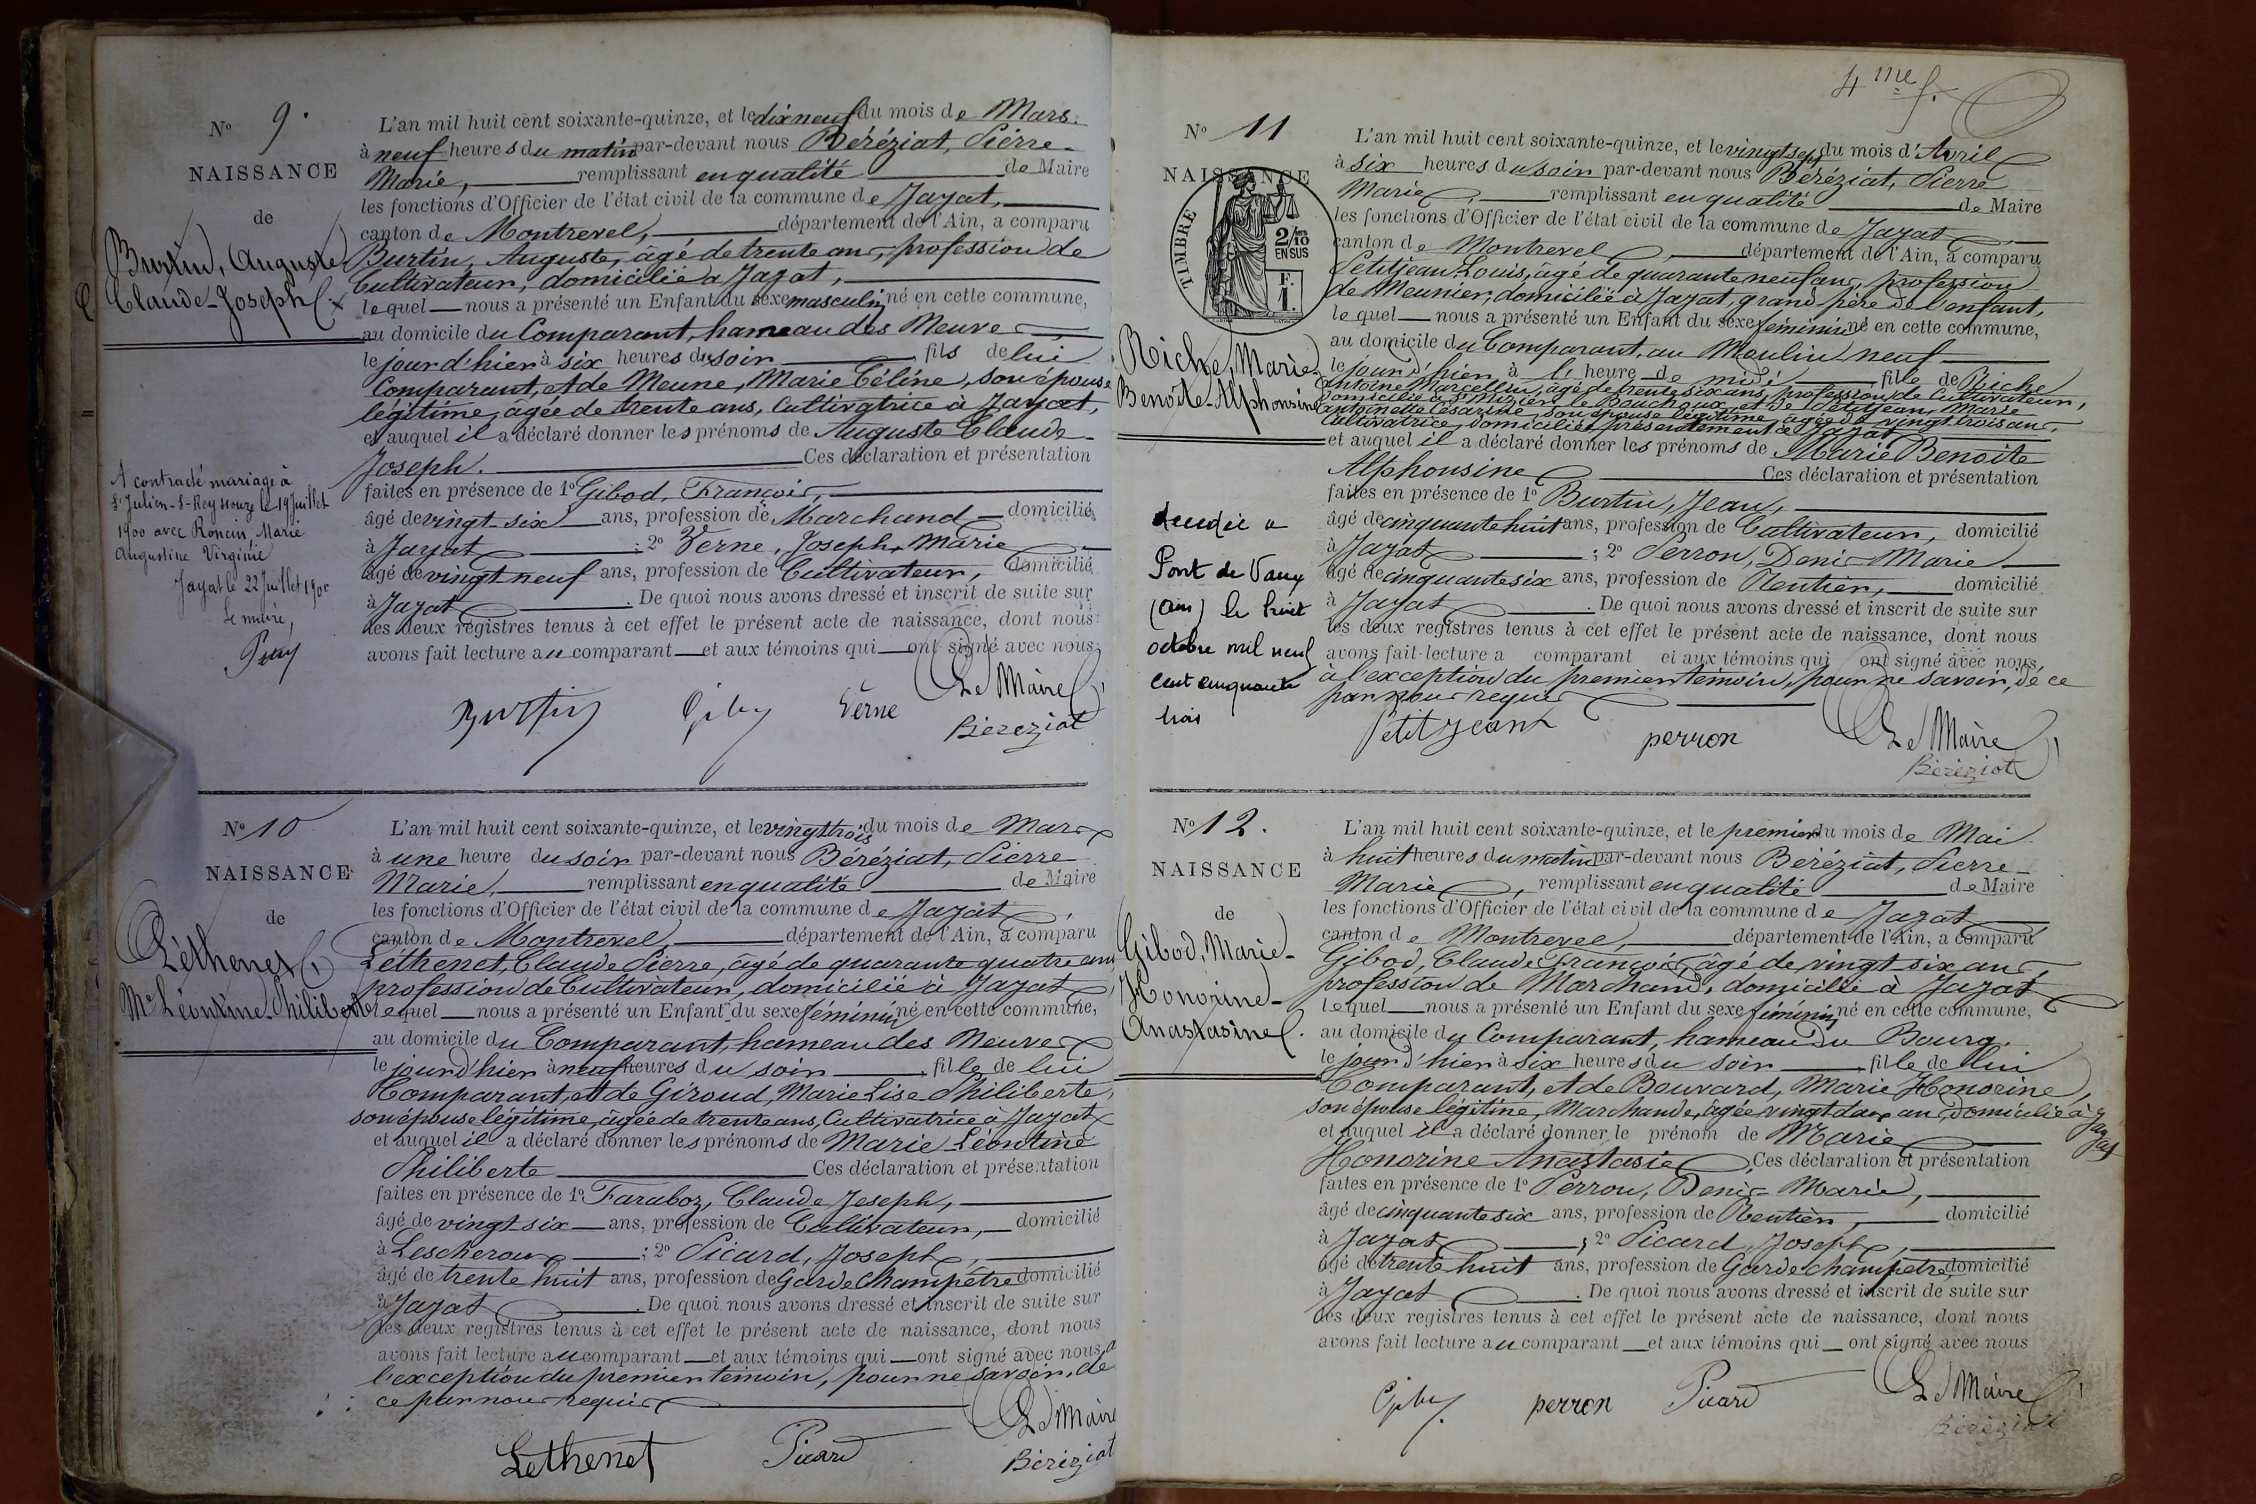 N° 9.
NAISSANCE
de
Burtin, Auguste
Claude-Joseph
A contracté mariage à
St Julien-s-Reyssouze le 19 juillet
1900 avec Roncin, Marie
Augustine Virginie
Jayat le 22 juillet 1900
Le maire,
L'an mil huit cent soixante-quinze, et le dix neuf du mois de Mars
à neuf heures du matin par-devant nous Béréziat, Pierre-
Marie, remplissant en qualité de Maire
les fonctions d'Officier de l'état civil de la commune de Jayat,
canton de Montrevel, département de l'Ain, a comparu
Burtin, Auguste, âgé de trente ans, profession de
Cultivateur, domicilié à Jayat,
lequel nous a présenté un Enfant du sexe masculin né en cette commune,
au domicile du Comparant, hameau des Meuve
le jour d'hier à six heures du soir fils de lui
Comparant, et de Meune, Marie Céline, son épouse
légitime, âgée de trente ans, Cultivatrice à Jayat,
et auquel il a déclaré donner les prénoms de Auguste Claude-
Joseph. Ces déclaration et présentation
faites en présence de 1° Gibod, François,
âgé de vingt-six ans, profession de Marchand domicilié
à Jayat ; 2° Verne, Joseph, Marie
âgé de vingt neuf ans, profession de Cultivateur, domicilié
à Jayat . De quoi nous avons dressé et inscrit de suite sur
les deux registres tenus à cet effet le présent acte de naissance, dont nous
avons fait lecture au comparant et aux témoins qui ont signé avec nous
Le Maire
Burtin Giby Verne
Béréziat
N° 10
NAISSANCE
de
Léthenet
Me Léontine-Philiberte
L'an mil huit cent soixante-quinze, et le vingt trois du mois de Mars
à une heure du soir par-devant nous Béréziat, Pierre
Marie, remplissant en qualité de Maire
les fonctions d'Officier de l'état civil de la commune de Jayat
canton de Montrevel, département de l'Ain, a comparu
Léthenet, Claude Pierre, âgé de quarante quatre ans
profession de Cultivateur, domicilié à Jayat
lequel nous a présenté un Enfant du sexe féminin né en cette commune,
au domicile du Comparant, hameau des Meuve
le jour d'hier à neuf heures du soir fille de lui
Comparant, et de Giroud, Marie Lise Philiberte,
son épouse légitime, âgée de trente ans, Cultivatrice à Jayat
et auquel il a déclaré donner les prénoms de Marie Léontine
Philiberte Ces déclaration et présentation
faites en présence de 1° Faraboz, Claude Joseph,
âgé de vingt six ans, profession de Cultivateur, domicilié
à Lescheroux ; 2° Picard, Joseph,
âgé de trente huit ans, profession de Garde champêtre domicilié
à Jayat . De quoi nous avons dressé et inscrit de suite sur
les deux registres tenus à cet effet le présent acte de naissance, dont nous
avons fait lecture au comparant et aux témoins qui ont signé avec nous à
l'exception du premier témoin, pour ne savoir, de
ce par nous requis
Le Maire
Lethenet Picard
Béréziat
4me f.
N° 11
NAISSANCE
TIMBRE
2/10
EN SUS
F.
1.
Riche, Marie-
Benoîte-Alphonsine
décédée à
Pont de Vaux
(Ain) le huit
octobre mil neuf
cent cinquante
trois
L'an mil huit cent soixante-quinze, et le vingt sept du mois d'Avril
à six heures du soir par-devant nous Béréziat, Pierre
Marie, remplissant en qualité de Maire
les fonctions d'Officier de l'état civil de la commune de Jayat
canton de Montrevel département de l'Ain, a comparu
Petitjean Louis, âgé de quarante neuf ans, profession
de Meunier, domicilié à Jayat, grand père de l'enfant,
lequel nous a présenté un Enfant du sexe féminin né en cette commune,
au domicile du Comparant, au Moulin neuf
le jour d'hier, à l' heure de midi fille de Riche
Antoine Marcellin, âgé de trente six ans, profession de Cultivateur,
domicilié à St le Bouchoux, et de Petitjean, Marie
Antoinette Césarine, son épouse légitime âgée de vingt trois ans,
Cultivatrice, domiciliée présentement à Jayat
et auquel il a déclaré donner les prénoms de Marie Benoîte
Alphonsine Ces déclaration et présentation
faites en présence de 1° Burtin, Jean,
âgé de cinquante huit ans, profession de Cultivateur, domicilié
à Jayat ; 2° Perron, Denis Marie
âgé de cinquante six ans, profession de Rentier, domicilié
à Jayat . De quoi nous avons dressé et inscrit de suite sur
les deux registres tenus à cet effet le présent acte de naissance, dont nous
avons fait lecture a comparant et aux témoins qui ont signé avec nous,
à l'exception du premier témoin, pour ne savoir, de ce
par nous requis
Petitjean perron Le Maire
Béréziat
N° 12.
NAISSANCE
de
Gibod, Marie-
Honorine-
Anastasine
L'an mil huit cent soixante-quinze, et le premier du mois de Mai
à huit heures du matin par-devant nous Béréziat, Pierre-
Marie, remplissant en qualité de Maire
les fonctions d'Officier de l'état civil de la commune de Jayat
canton de Montrevel, département de l'Ain, a comparu
Gibod, Claude François, âgé de vingt six ans,
profession de Marchand, domicilié à Jayat
lequel nous a présenté un Enfant du sexe féminin né en cette commune,
au domicile du Comparant, hameau du Bourg.
le jour d'hier à six heures du soir fille de lui
Comparant, et de Bouvard, Marie Honorine,
son épouse légitime, Marchande, âgée vingt deux ans, domiciliée à Jayat
et auquel il a déclaré donner le prénom de Marie
Honorine Anastasie Ces déclaration et présentation
faites en présence de 1° Perron, Denis-Marie,
âgé de cinquante six ans, profession de Rentier, domicilié
à Jayat ; 2° Picard, Joseph,
âgé de trente huit ans, profession de Garde champêtre, domicilié
à Jayat . De quoi nous avons dressé et inscrit de suite sur
les deux registres tenus à cet effet le présent acte de naissance, dont nous
avons fait lecture au comparant et aux témoins qui ont signé avec nous
Giby perron Picard Le Maire
Béréziat